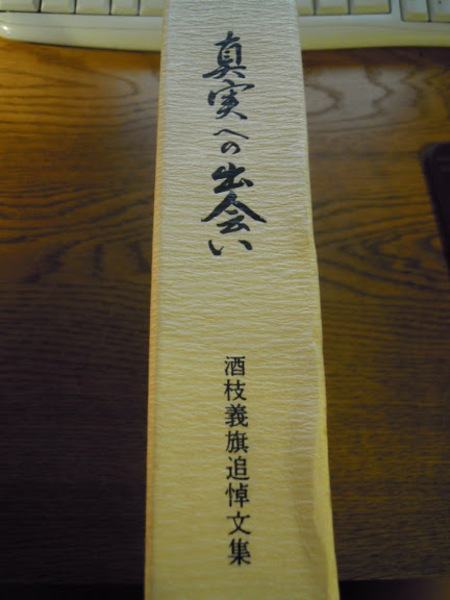 真実への出会い
酒枝義旗追悼文集